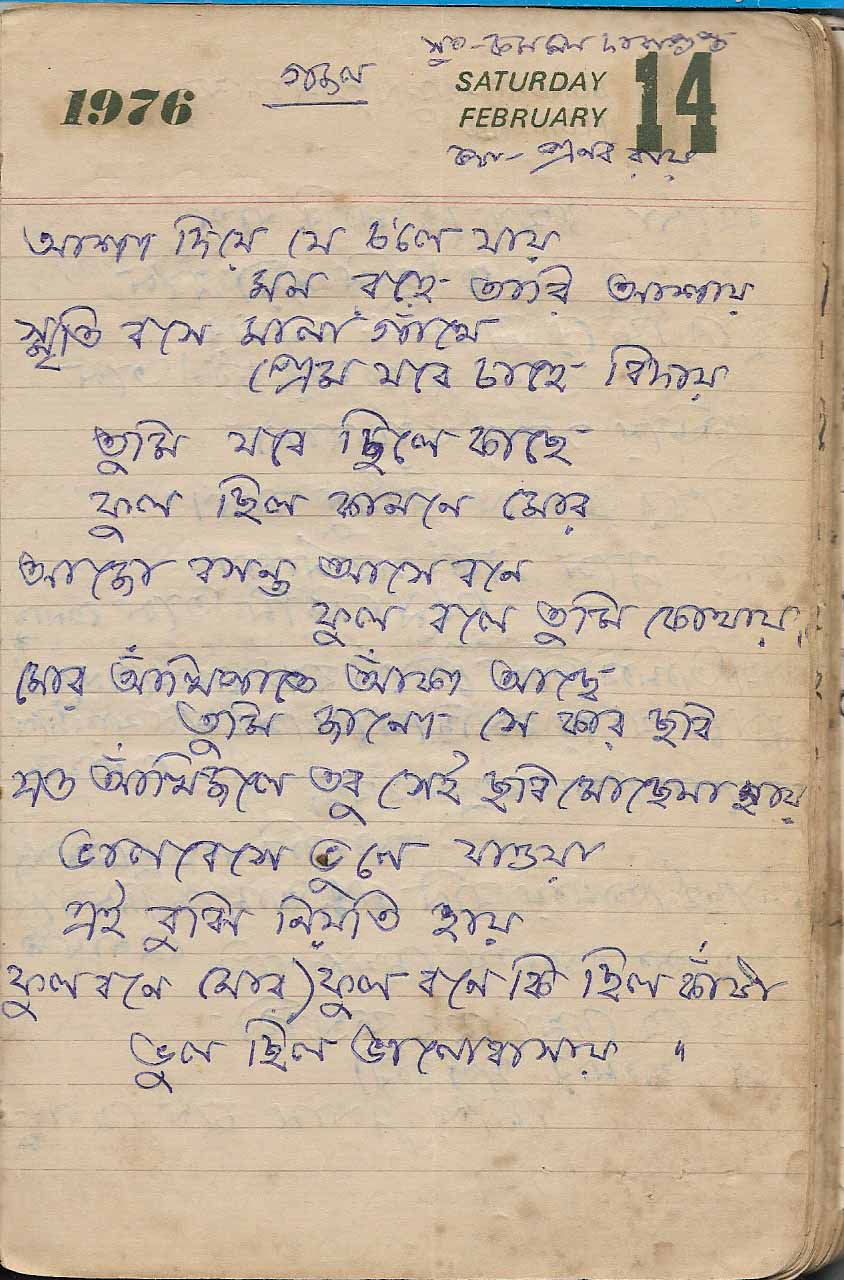 সুর - কমল দাশগুপ্ত
গজল
1976
SATURDAY
FEBRUARY
14
কথা - প্রণব রায়
আশা দিয়ে যে চলে যায়
মন রহে তারি আশায়
স্মৃতি বসে মালা গাঁথে
প্রেম যবে চাহে বিদায়
তুমি যবে ছিলে কাছে
ফুল ছিল কাননে মোর
আজো বসন্ত আসে বনে
ফুল বলে তুমি কোথায়
মোর আঁখিপাতে আঁকা আছে
তুমি জানো সে কার ছবি
শত আঁখিজলে তবু সেই ছবি মোছেনা হায়
ভালবেসে ভুলে যাওয়া
এই বুঝি নিয়তি হায়
ফুলবনে মোর) ফুল বনে কি ছিল কাঁটা
ভুল ছিল ভালোবাসায় "